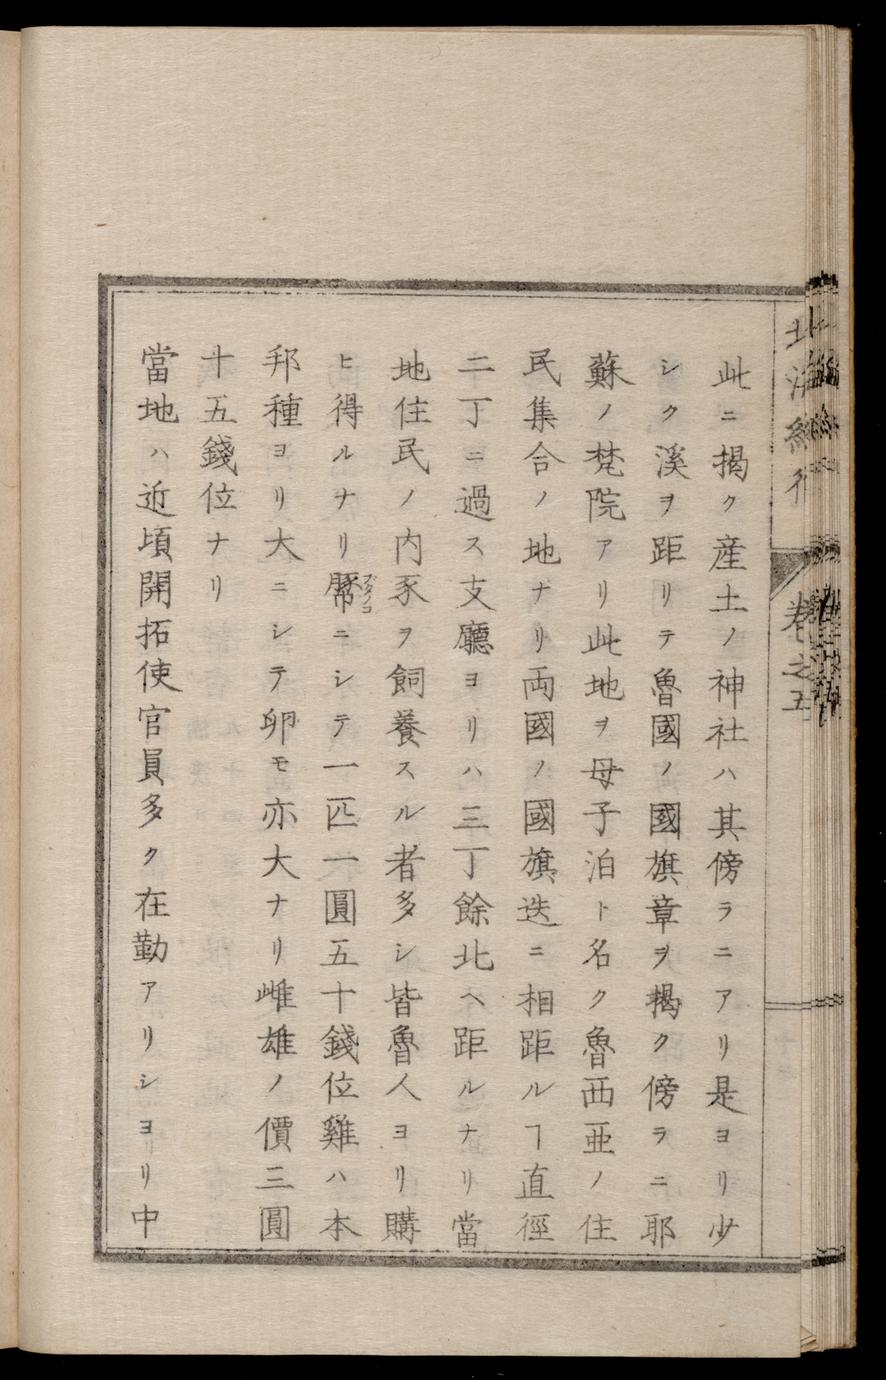 此ニ揭ク産土ノ神社ハ其傍ラニアリ是ヨリ少
シク溪ヲ距リテ魯國ノ國旗章ヲ揭ク傍ラニ耶
蘇ノ梵院アリ此地ヲ母子泊ト名ク魯西亜ノ住
民集合ノ地ナリ両國ノ國旗迭ニ相距ルヿ直徑
二丁ニ過ス支廳ヨリハ三丁餘北ヘ距ルナリ當
地住民ノ内豕ヲ飼養スル者多シ皆魯人ヨリ購
ヒ得ルナリ
ブタノコ
ニシテ一匹一圓五十錢位雞ハ本
邦種ヨリ大ニシテ卵モ亦大ナリ雌雄ノ價三圓
十五錢位ナリ
當地ハ近頃開拓使官員多ク在勤アリシヨリ中
卷之五